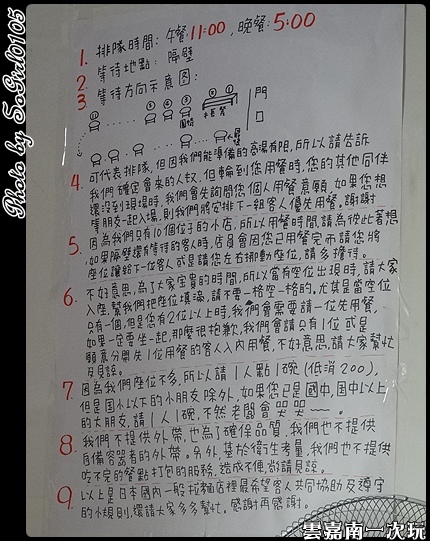 1. 排隊時間: 午餐:11:00,晚餐:5:00
2. 等待地點: 隔壁
3. 等待方向示意图:
門
4. 可代表排隊,但因我們能準備的高湯有限,所以請告訴
我們確定會來的人數,但輪到您用餐時,您的其他同伴
還沒到現場時,我們會先詢問您個人用餐意願,如果您想
等朋友一起入場,則我們將安排下一組客人優先用餐,謝謝
5. 因為我們只有10個位子的小店,所以用餐時間請為彼此著想
,如果隔壁還有等待的客人時,店員會因您已用餐完而請您將
座位讓給下一位客人或是請您左右挪動座位,請多擔待。
6. 不好意思,為了大家寶貴的時間,所以當有空位出現時,請大家
入座,幫我們把座位填滿,請不要一格空一格的。尤其是當空位
只有一個,但是您有2位以上時,我們會需要請一位先用餐,
如果一定要坐一起,那麼很抱歉,我們會請只有1位 或是
願意分開先1位用餐的客人入內用餐,不好意思,請大家幫忙
及見諒。
7. 因為我們座位不多,所以請1人點1碗(低消200),
但是国小以下的小朋友除外,如果您已是國中,国中以上
的大朋友,請1人1碗,不然老闆會哭哭~~。
8. 我們不提供外帶,也為了確保品質,我們也不提供
自備容器者的外帶。另外,基於衛生考量,我們也不提供
吃不完的餐點打包的服務,造成不便,尚請見諒。
9. 以上是日本國內一般拉麵店裡最希望客人共同協助及遵守
的小規則,還請大家多多幫忙。感謝再感謝。
雲嘉南一次玩
Photo by SoGird0105